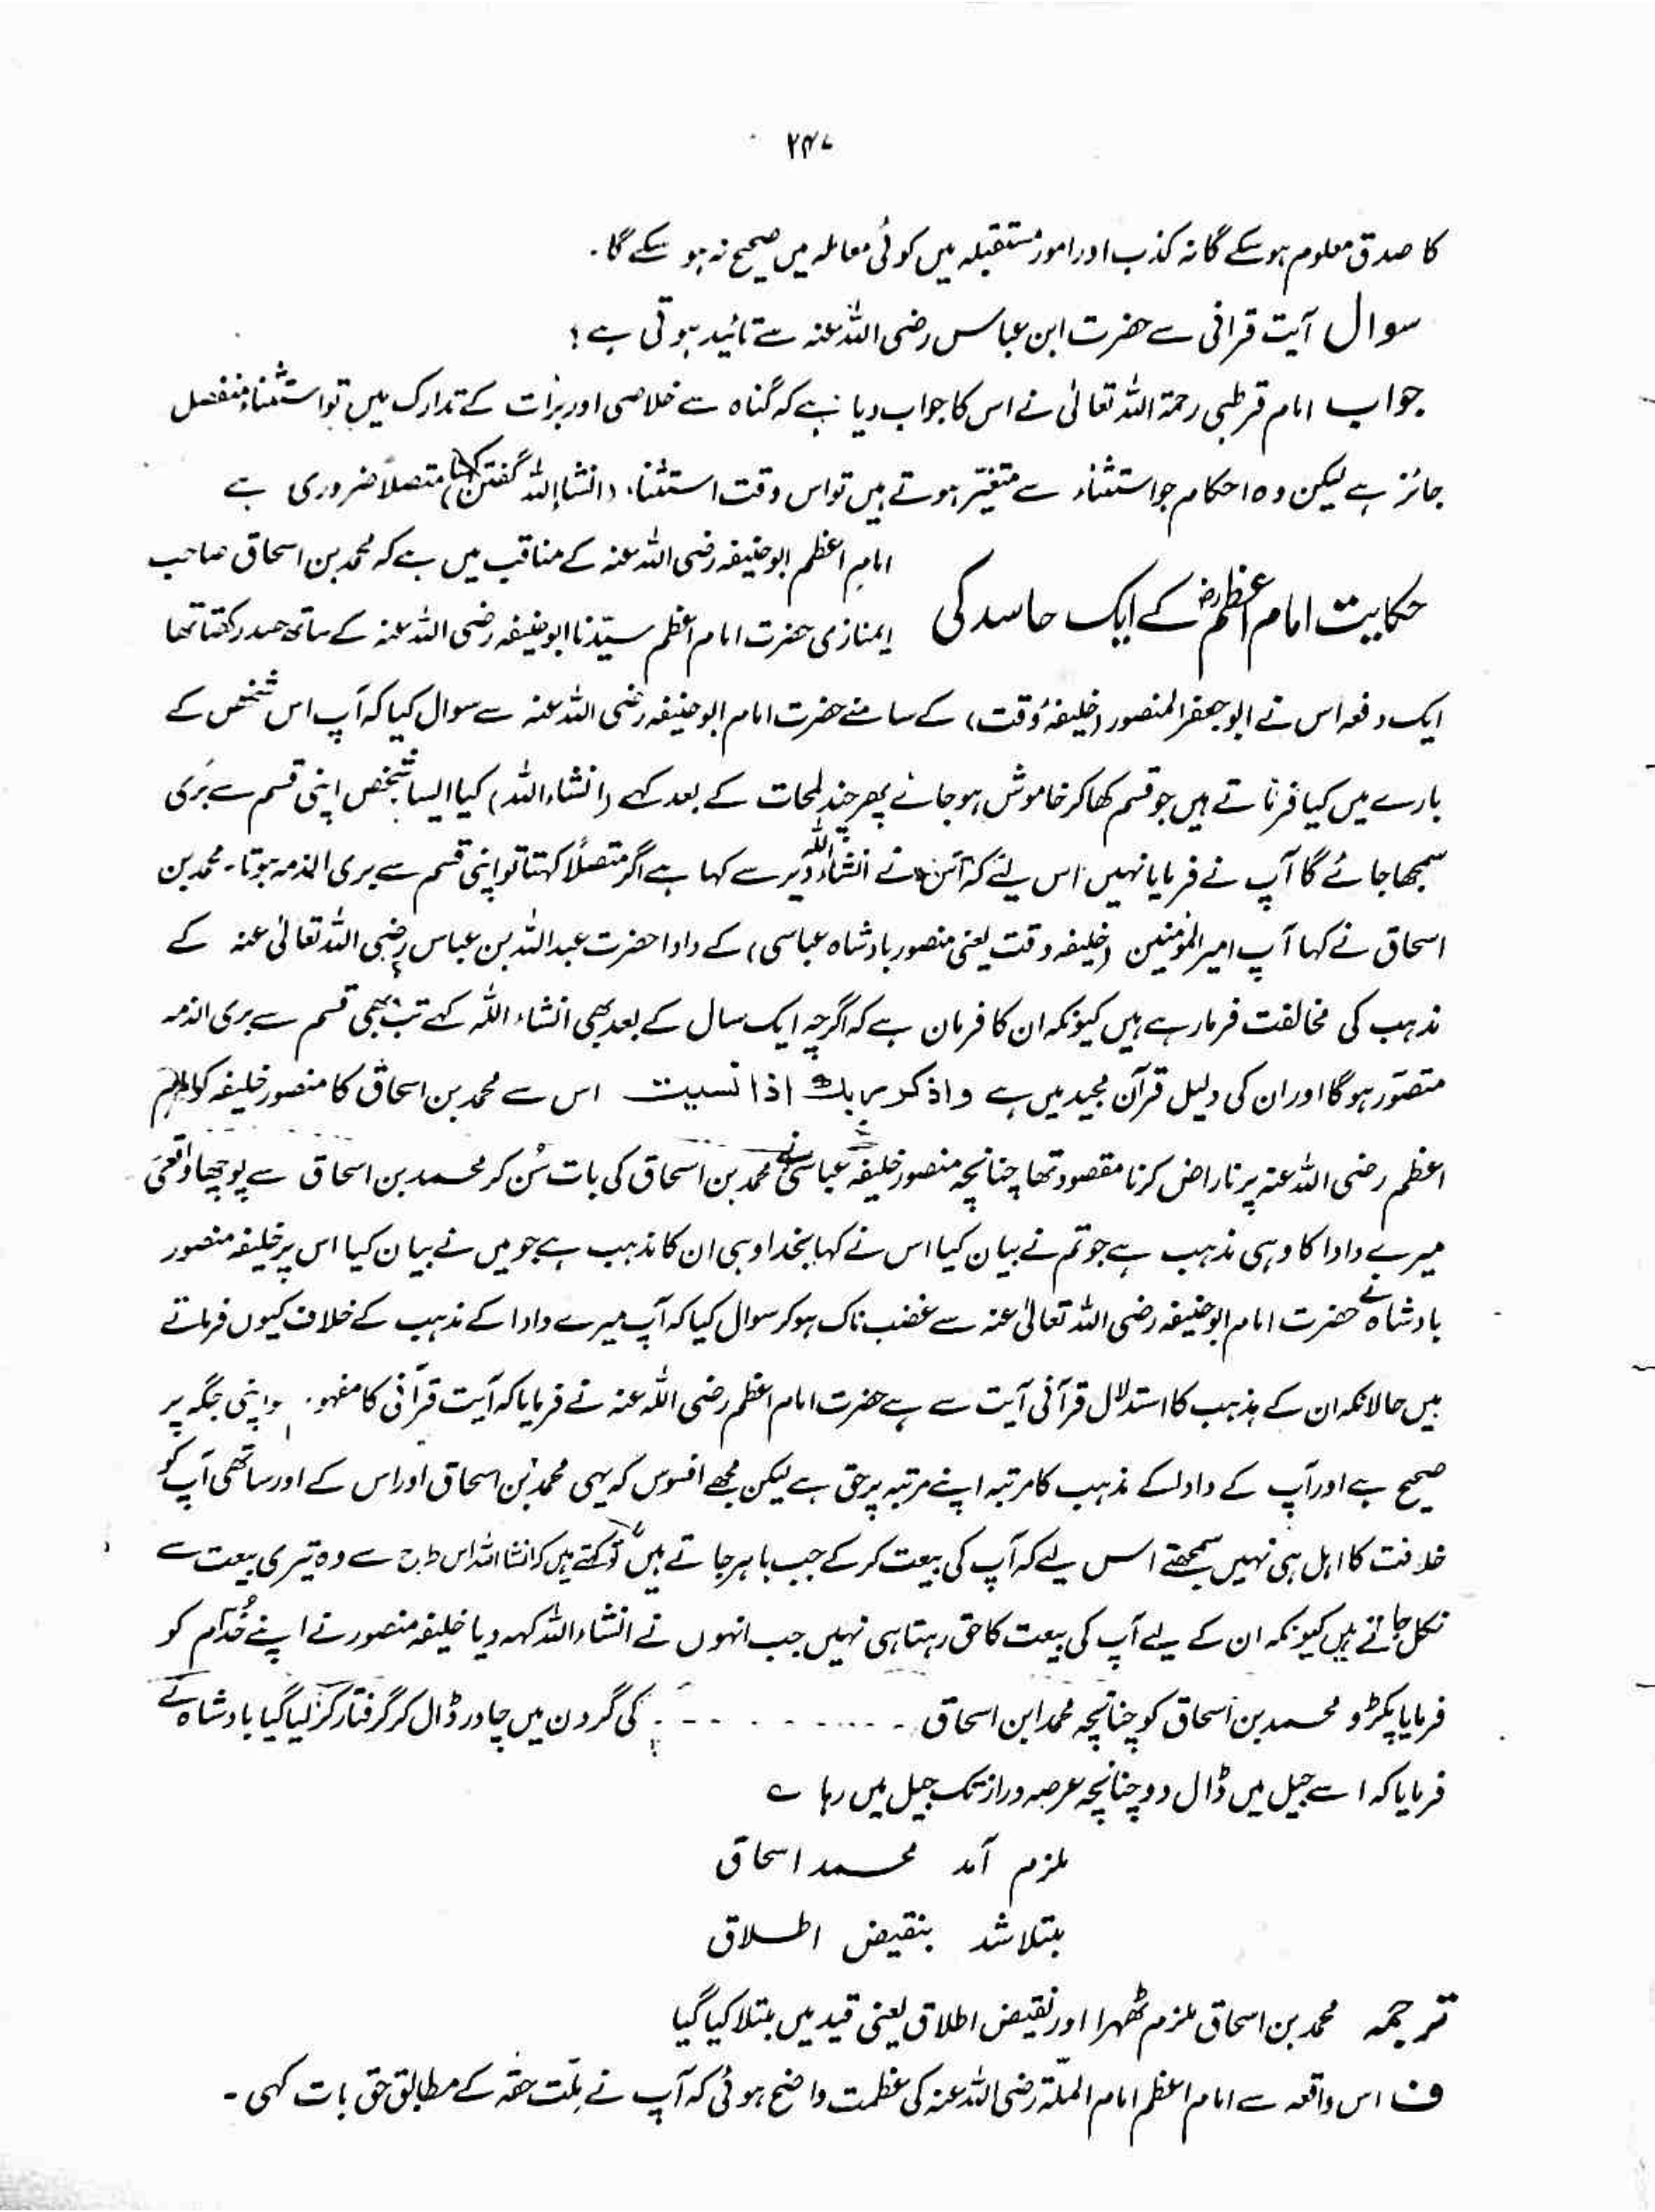 ۲۴۷
کا صدق معلوم ہو سکے گا نہ کذب اور امور مستقبلہ میں کوئی معاملہ میں صحیح نہ ہو سکے گا۔
سوال آیت قرآنی سے حضرت ابن عباس رضی اللہ عنہ سے تائید ہوتی ہے؛
جواب امام قرطبی رحمۃ اللہ تعالیٰ نے اس کا جواب دیا ہے کہ گناہ سے خلاصی اور برأت کے تدارک میں تو استثناء منفصل
جائز ہے لیکن وہ احکام جو استثناء سے متغیر ہوتے ہیں تو اس وقت استثناء (انشاء اللہ گفتن کہنا) متصلاً ضروری ہے
حکایت امام اعظمؓ کے ایک حاسد کی
امام اعظم ابو حنیفہ رضی اللہ عنہ کے مناقب میں ہے کہ محمد بن اسحاق صاحب
المغازی حضرت امام اعظم سیدنا ابو حنیفہ رضی اللہ عنہ کے ساتھ حسد رکھتا تھا
ایک دفعہ اس نے ابو جعفر المنصور (خلیفۂ وقت) کے سامنے حضرت امام ابو حنیفہ رضی اللہ عنہ سے سوال کیا کہ آپ اس شخص کے
بارے میں کیا فرماتے ہیں جو قسم کھا کر خاموش ہو جائے پھر چند لمحات کے بعد کہے (انشاء اللہ) کیا ایسا شخص اپنی قسم سے بری
سمجھا جائے گا آپ نے فرمایا نہیں اس لئے کہ اس نے انشاء اللہ دیر سے کہا ہے اگر متصلاً کہتا تو اپنی قسم سے بری الذمہ ہوتا۔ محمد بن
اسحاق نے کہا آپ امیر المؤمنین (خلیفہ وقت یعنی منصور بادشاہ عباسی) کے دادا حضرت عبداللہ بن عباس رضی اللہ تعالیٰ عنہ کے
مذہب کی مخالفت فرما رہے ہیں کیونکہ ان کا فرمان ہے کہ اگرچہ ایک سال کے بعد بھی انشاء اللہ کہے تب بھی قسم سے بری الذمہ
متصور ہوگا اور ان کی دلیل قرآن مجید میں ہے واذکر ربك اذا نسیت اس سے محمد بن اسحاق کا منصور خلیفہ کو امام
اعظم رضی اللہ عنہ پر ناراض کرنا مقصود تھا چنانچہ منصور خلیفہ عباسی نے محمد بن اسحاق کی بات سُن کر محمد بن اسحاق سے پوچھا واقعی
میرے دادا کا وہی مذہب ہے جو تم نے بیان کیا اس نے کہا بخدا وہی ان کا مذہب ہے جو میں نے بیان کیا اس پر خلیفہ منصور
بادشاہ نے حضرت امام ابو حنیفہ رضی اللہ تعالیٰ عنہ سے غضب ناک ہو کر سوال کیا کہ آپ میرے دادا کے مذہب کے خلاف کیوں فرماتے
ہیں حالانکہ ان کے مذہب کا استدلال قرآنی آیت سے ہے حضرت امام اعظم رضی اللہ عنہ نے فرمایا کہ آیت قرآنی کا مفہوم اپنی جگہ پر
صحیح ہے اور آپ کے دادا کے مذہب کا مرتبہ اپنے مرتبہ پر حق ہے لیکن مجھے افسوس کہ یہی محمد بن اسحاق اور اس کے اور ساتھی آپ کو
خلافت کا اہل ہی نہیں سمجھتے اس لیے کہ آپ کی بیعت کر کے جب باہر جاتے ہیں تو کہتے ہیں کہ انشاء اللہ اس طرح سے وہ تیری بیعت سے
نکل جاتے ہیں کیونکہ ان کے لیے آپ کی بیعت کا حق رہتا ہی نہیں جب انہوں نے انشاء اللہ کہہ دیا خلیفہ منصور نے اپنے خُدّام کو
فرمایا پکڑو محمد بن اسحاق کو چنانچہ محمد ابن اسحاق - - - - - - - - کی گردن میں چادر ڈال کر گرفتار کر لیا گیا بادشاہ نے
فرمایا کہ اسے جیل میں ڈال دو چنانچہ عرصہ دراز تک جیل میں رہا ے
ملزم آمد محمد اسحاق
مبتلا شد بنقیض اطلاق
ترجمہ محمد بن اسحاق ملزم ٹھہرا اور نقیض اطلاق یعنی قید میں مبتلا کیا گیا
ف اس واقعہ سے امام اعظم امام الملّۃ رضی اللہ عنہ کی عظمت واضح ہوئی کہ آپ نے ملّت حقّہ کے مطابق حق بات کہی۔